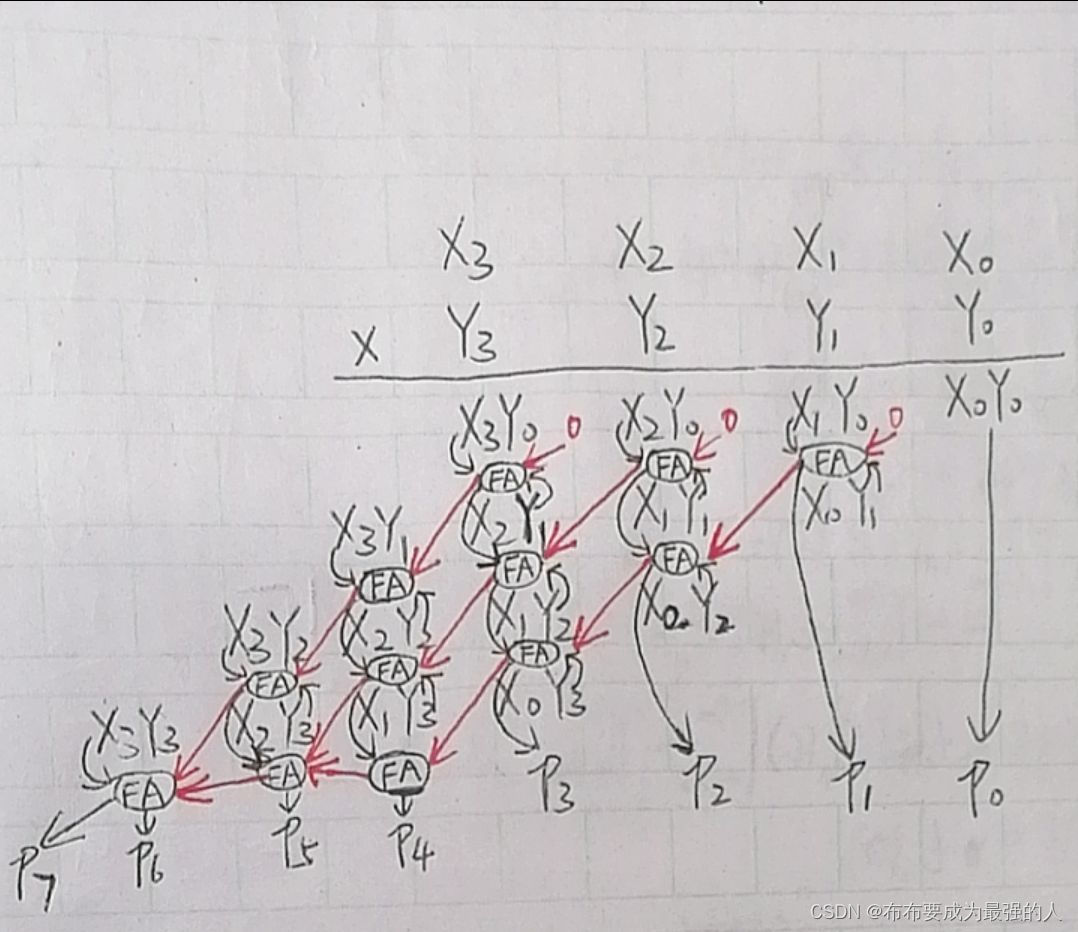 X3 X2 X1 X0
X Y3 Y2 Y1 Y0
X3Y0 0 X2Y0 0 X1Y0 0 X0Y0
FA FA FA
X3Y1 X2Y1 X1Y1 X0Y1
FA FA FA
X3Y2 X2 X1Y2 X0Y2
FA FA FA
X3Y3 X2Y3 X1Y3 X0Y3
FA FA FA
P3 P2 P1 P0
P7 P6 P5 P4
CSDN @布布要成为最强的人